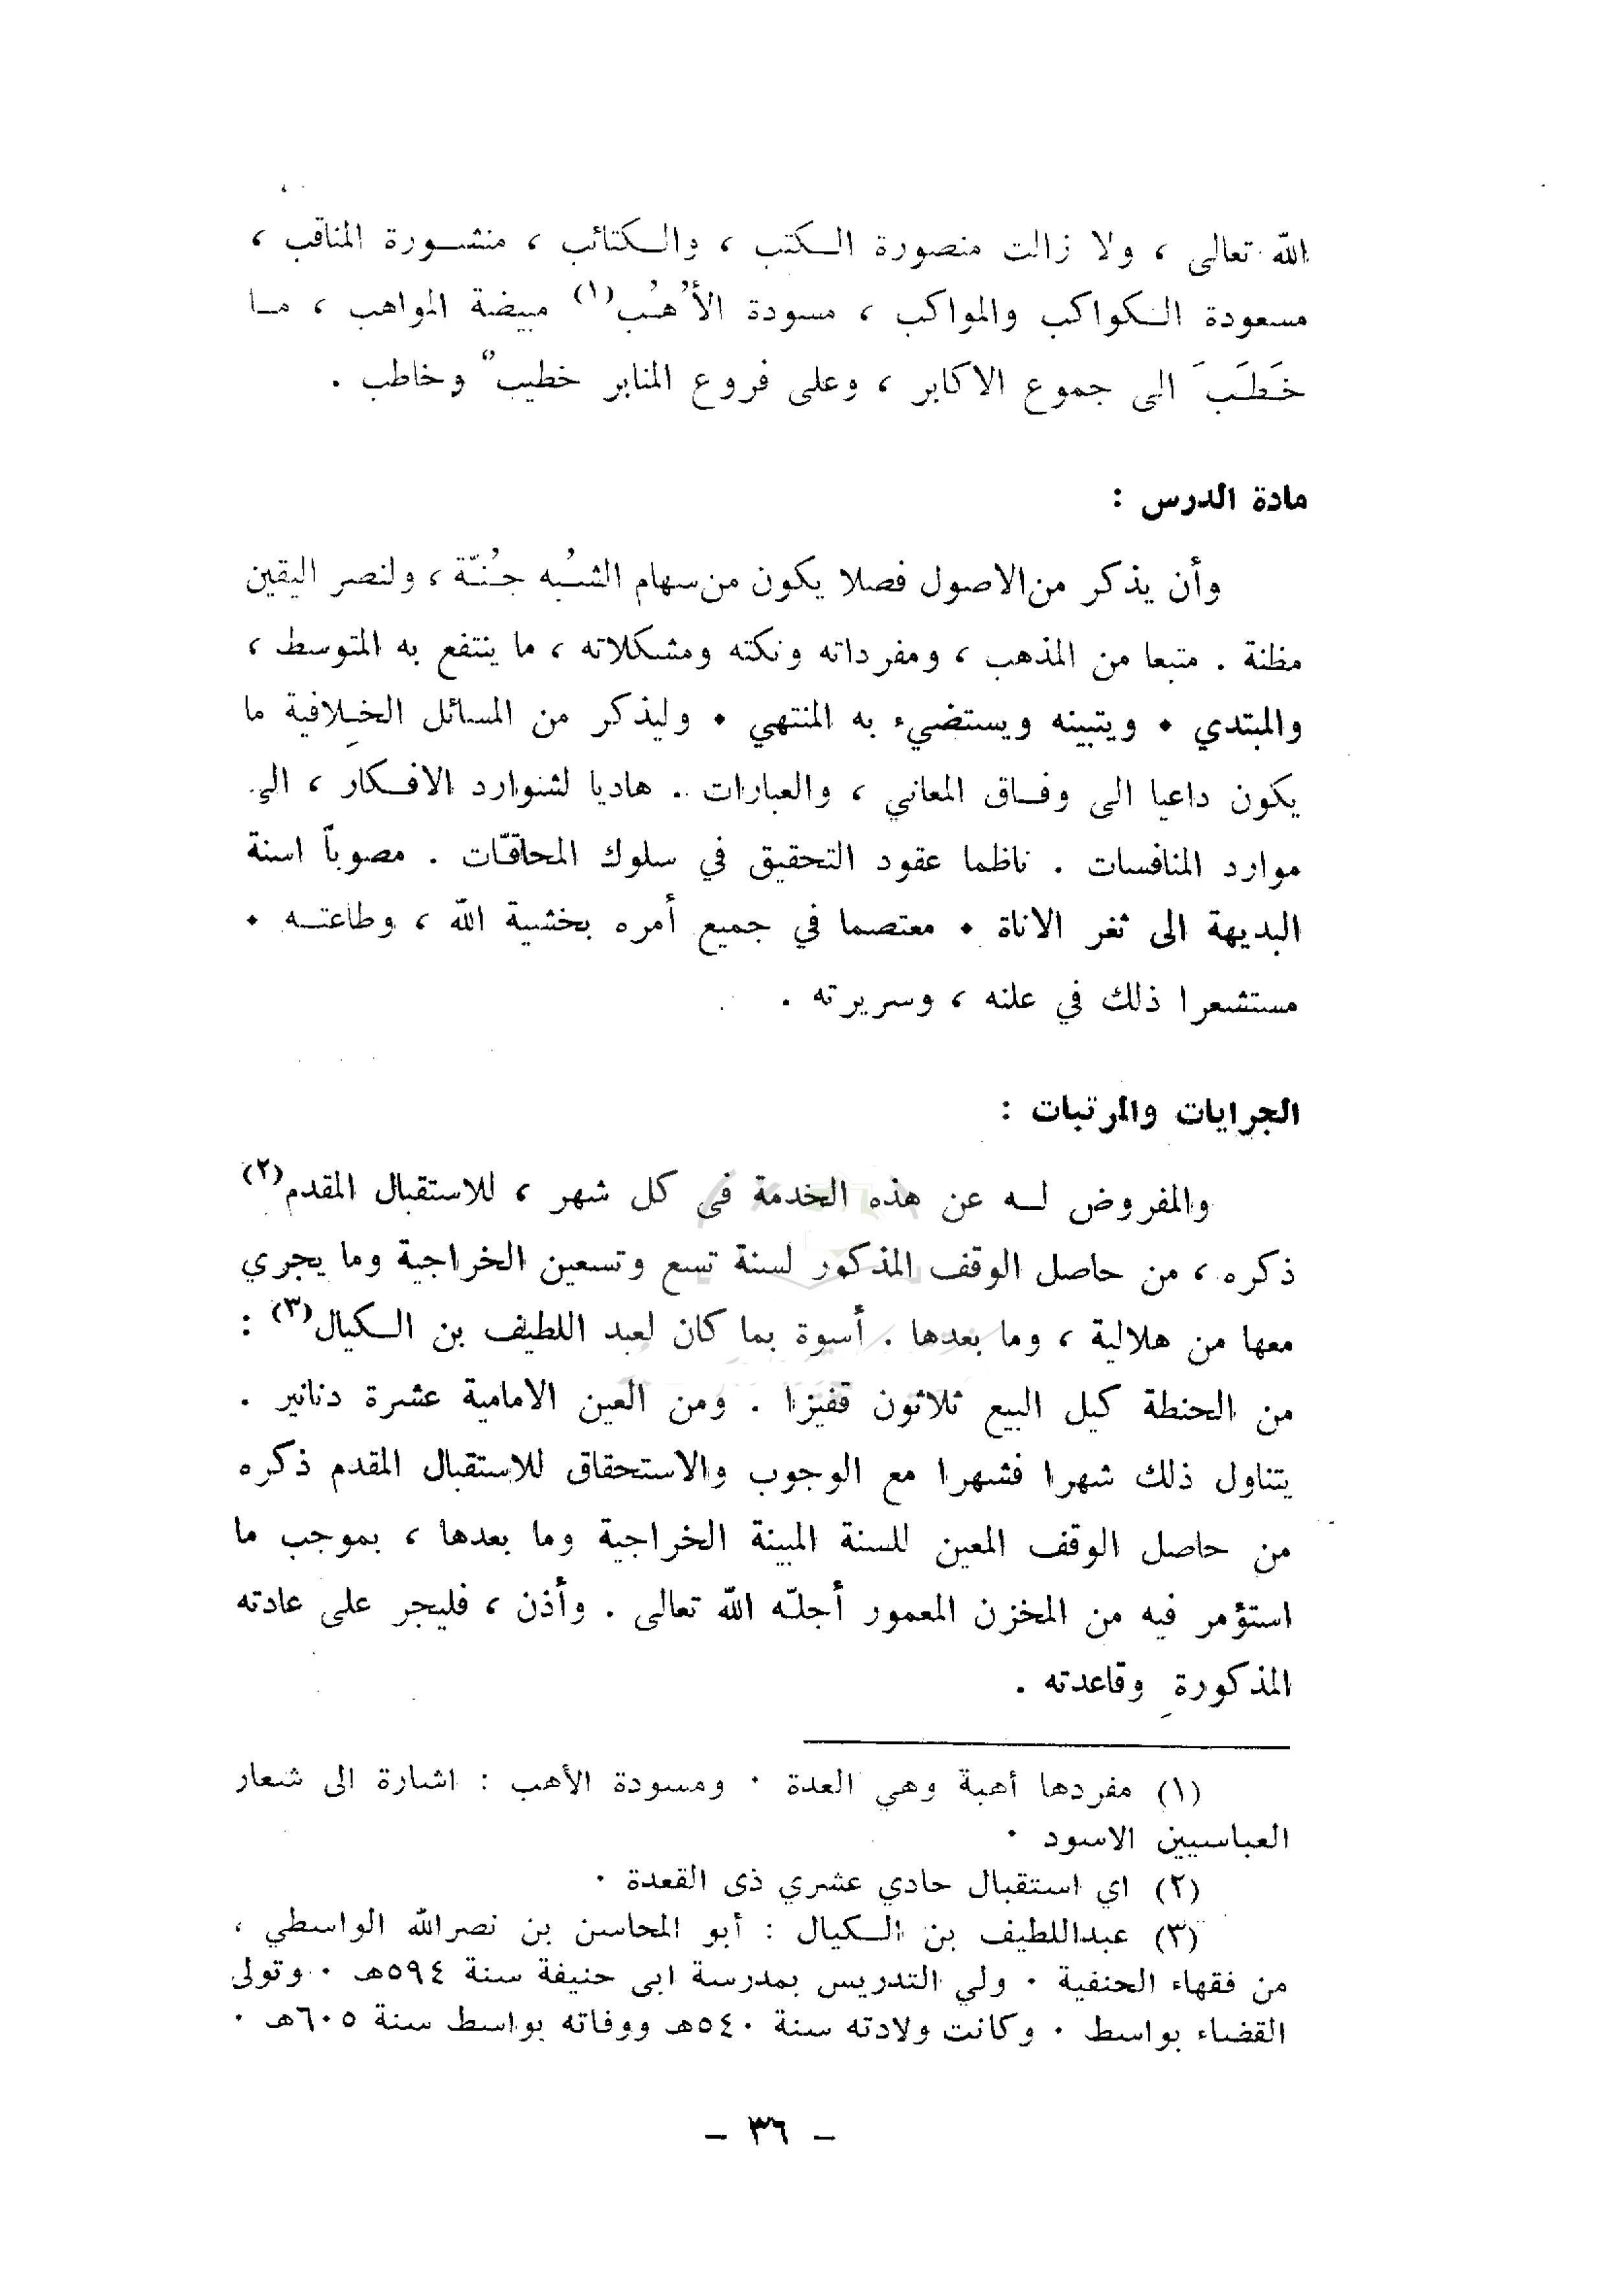 الله تعالى ، ولا زالت منصورة الكتب ، والكتائب ، منشورة المناقب ،
مسعودة الكواكب والمواكب ، مسودة الأُهُب(١) مبيضة المواهب ، ما
خَطَبَ الى جموع الاكابر ، وعلى فروع المنابر خطيبٌ وخاطب .
مادة الدرس :
وأن يذكر من الاصول فصلا يكون من سهام الشُبه جُنّة ، ولنصر اليقين
مظنة . متبعا من المذهب ، ومفرداته ونكته ومشكلاته ، ما ينتفع به المتوسط ،
والمبتدي . ويتبينه ويستضيء به المنتهي . وليذكر من المسائل الخلافية ما
يكون داعيا الى وفاق المعاني ، والعبارات . هاديا لشوارد الافكار ، الى
موارد المنافسات . ناظما عقود التحقيق في سلوك المحاقّات . مصوباً اسنة
البديهة الى ثغر الاناة . معتصما في جميع أمره بخشية الله ، وطاعته .
مستشعرا ذلك في علنه ، وسريرته .
الجرايات والمرتبات :
والمفروض له عن هذه الخدمة في كل شهر ، للاستقبال المقدم(٢)
ذكره ، من حاصل الوقف المذكور لسنة تسع وتسعين الخراجية وما يجري
معها من هلالية ، وما بعدها . أسوة بما كان لعبد اللطيف بن الكيال(٣) :
من الحنطة كيل البيع ثلاثون قفيزا . ومن العين الامامية عشرة دنانير .
يتناول ذلك شهرا فشهرا مع الوجوب والاستحقاق للاستقبال المقدم ذكره
من حاصل الوقف المعين للسنة المبينة الخراجية وما بعدها ، بموجب ما
استؤمر فيه من المخزن المعمور أجلّه الله تعالى . وأذن ، فليجر على عادته
المذكورة وقاعدته .
(١) مفردها أهبة وهي العدة . ومسودة الأهب : اشارة الى شعار
العباسيين الاسود .
(٢) اي استقبال حادي عشري ذى القعدة .
(٣) عبداللطيف بن الكيال : أبو المحاسن بن نصرالله الواسطي ،
من فقهاء الحنفية . ولي التدريس بمدرسة ابى حنيفة سنة ٥٩٤هـ . وتولى
القضاء بواسط . وكانت ولادته سنة ٥٤٠هـ ووفاته بواسط سنة ٦٠٥هـ .
- ٣٦ -